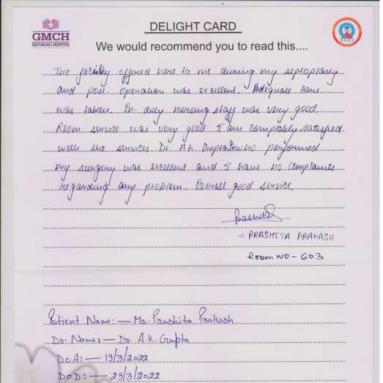 GMCH
GEETANJALI HOSPITAL
DELIGHT CARD
We would recommend you to read this....
The facility offered here to me during my septoplasty
and post operation was excellent. Adequate care
was taken. Dr. duty nursing staff was very good.
Room service was very good I am completely satisfied
with the services. Dr. A.K. Gupta who performed
my surgery was excellent and I have no complaints
regarding any problem. Overall good service.
PRASHITA PRAKASH
ROOM NO - 603
Patient Name: — Ms. Prashita Prakash
Dr. Name: — Dr. A.K. Gupta
DOA: — 19/3/2022
DOD: — 23/3/2022